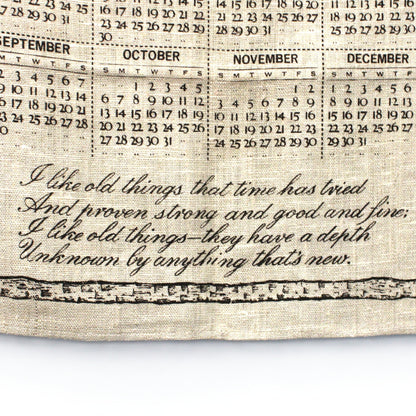 16 17 18 19 20 21 22
23 24 25 26 27 28 29
30
21 22 23 24 25 26 27
28 29 30 31
18 19 20 21 22 23 24
25 26 27 28 29 30 31
SEPTEMBER
M T W T F S
2 3 4 5 6 7
9 10 11 12 13 14
16 17 18 19 20 21
23 24 25 26 27 28
30
OCTOBER
S M T W T F S
1 2 3 4 5
6 7 8 9 10 11 12
13 14 15 16 17 18 19
20 21 22 23 24 25 26
27 28 29 30 31
NOVEMBER
S M T W T F S
1 2
3 4 5 6 7 8 9
10 11 12 13 14 15 16
17 18 19 20 21 22 23
24 25 26 27 28 29 30
DECEMBER
S M T W T F
1 2 3 4 5 6
8 9 10 11 12 13
15 16 17 18 19 20
22 23 24 25 26 27
29 30 31
I like old things that time has tried
And proven strong and good and fine;
I like old things—they have a depth
Unknown by anything that's new.